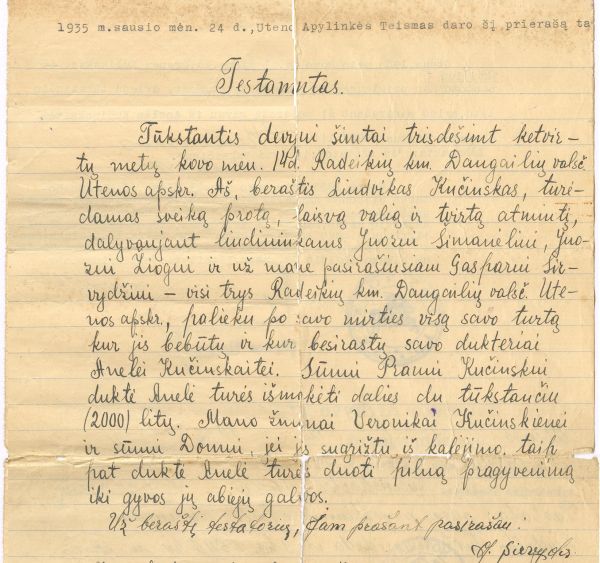 1935 m.sausio mėn. 24 d., Uteno Apylinkės Teismas daro šį prierašą ta
Testamentas.
Tūkstantis devyni šimtai trisdešimt ketvir-
tų metų kovo mėn. 14d. Radeikių km. Daugailių valsč.
Utenos apskr. Aš, beraštis Liudvikas Kučinskas, turė-
damas sveiką protą, laisvą valią ir tvirtą atmintį,
dalyvaujant liudininkams Juozui Simanėliui, Juo-
zui Žiogui ir už mane pasirašiusiam Gasparui Sir-
vydžiui – visi trys Radeikių km. Daugailių valsč. Ute-
nos apskr., palieku po savo mirties visą savo turtą
kur jis bebūtų ir kur besirastų savo dukteriai
Anelei Kučinskaitei. Sūnui Pranui Kučinskui
duktė Anelė turės išmokėti dalies du tūkstančiu
(2000) litų. Mano žmonai Veronikai Kučinskienei
ir sūnui Domui, jei jis sugrįžtų iš kalėjimo, taip
pat duktė Anelė turės duoti pilną pragyvenimą
iki gyvos jų abiejų galvos.
Už beraštį testatorių, jam prašant pasirašau: